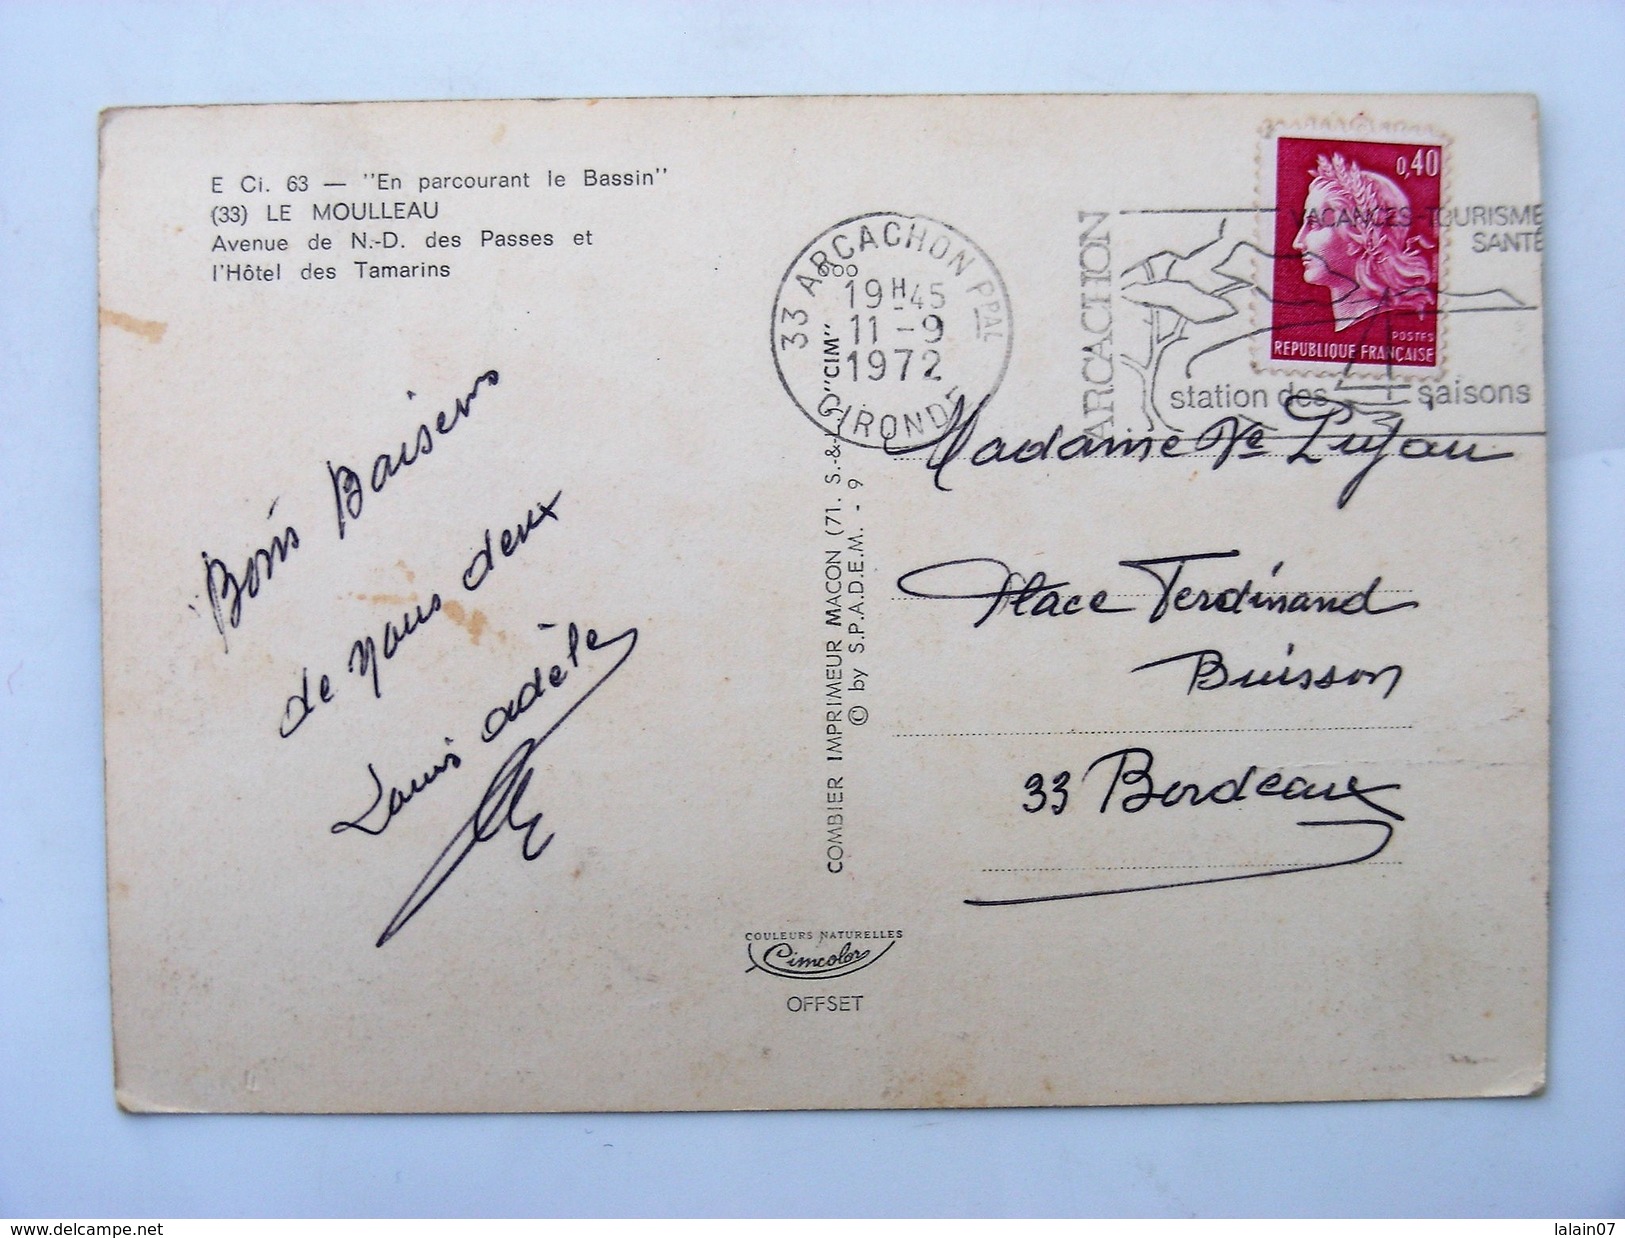 E Ci. 63 — "En parcourant le Bassin"
(33) LE MOULLEAU
Avenue de N.-D. des Passes et
l'Hôtel des Tamarins
Bons Baisers
de nous deux
Louis adèle
33 ARCACHON PPAL
19H45
11-9
1972
GIRONDE
ARCACHON
VACANCES-TOURISME
SANTÉ
station des saisons
0,40
POSTES
REPUBLIQUE FRANÇAISE
COMBIER IMPRIMEUR MACON (71. S.-&-L.) "CIM"
© by S.P.A.D.E.M. - 9
Madame Ve Lujau
Place Ferdinand
Buisson
33 Bordeaux
COULEURS NATURELLES
Cimcolor
OFFSET
www.delcampe.net
lalain07